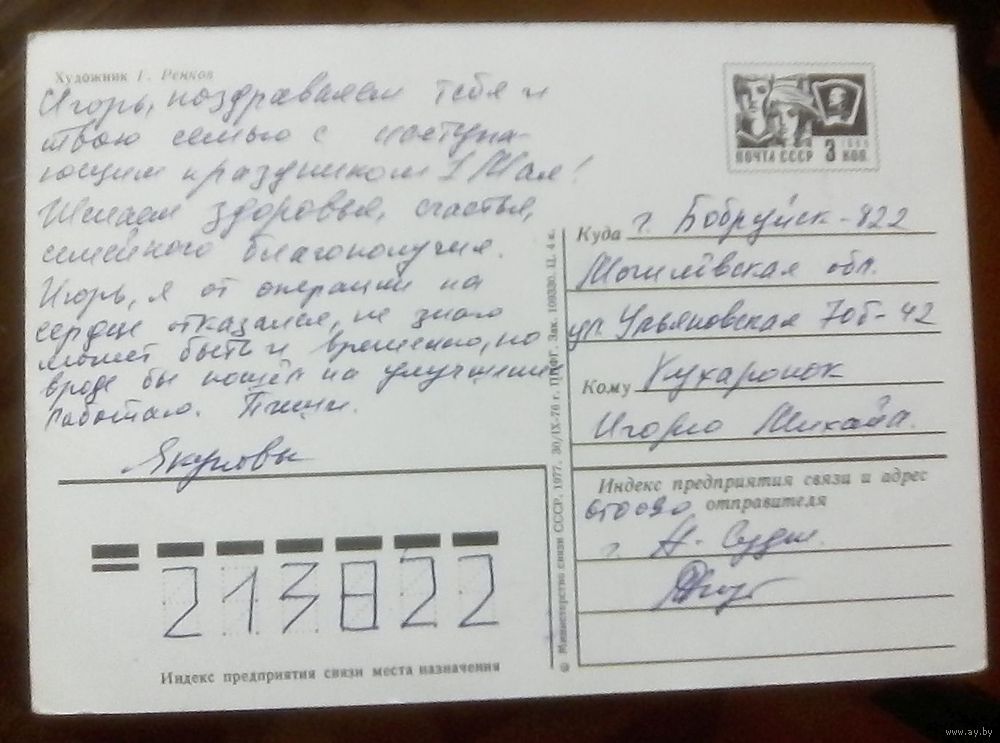 Художник Г. Ренков
Игорь, поздравляем тебя и
твою семью с наступа-
ющим праздником 1 Мая!
Желаем здоровья, счастья,
семейного благополучия.
Игорь, я от операции на
сердце отказался, не знаю
может быть и временно, но
вроде бы пошёл на улучшение
Работаю. Пиши.
Якуповы
ПОЧТА СССР 3 КОП.
Куда г. Бобруйск-822
Могилёвская обл.
ул Ульяновская 70б-42
Кому Кухаронок
Игорю Михайл.
Индекс предприятия связи и адрес
отправителя
г.
213822
Индекс предприятия связи места назначения
© Министерство связи СССР, 1977. 30/IX-76 г. ППФГ. Зак. 109330. Ц. 4 к.
www.ay.by